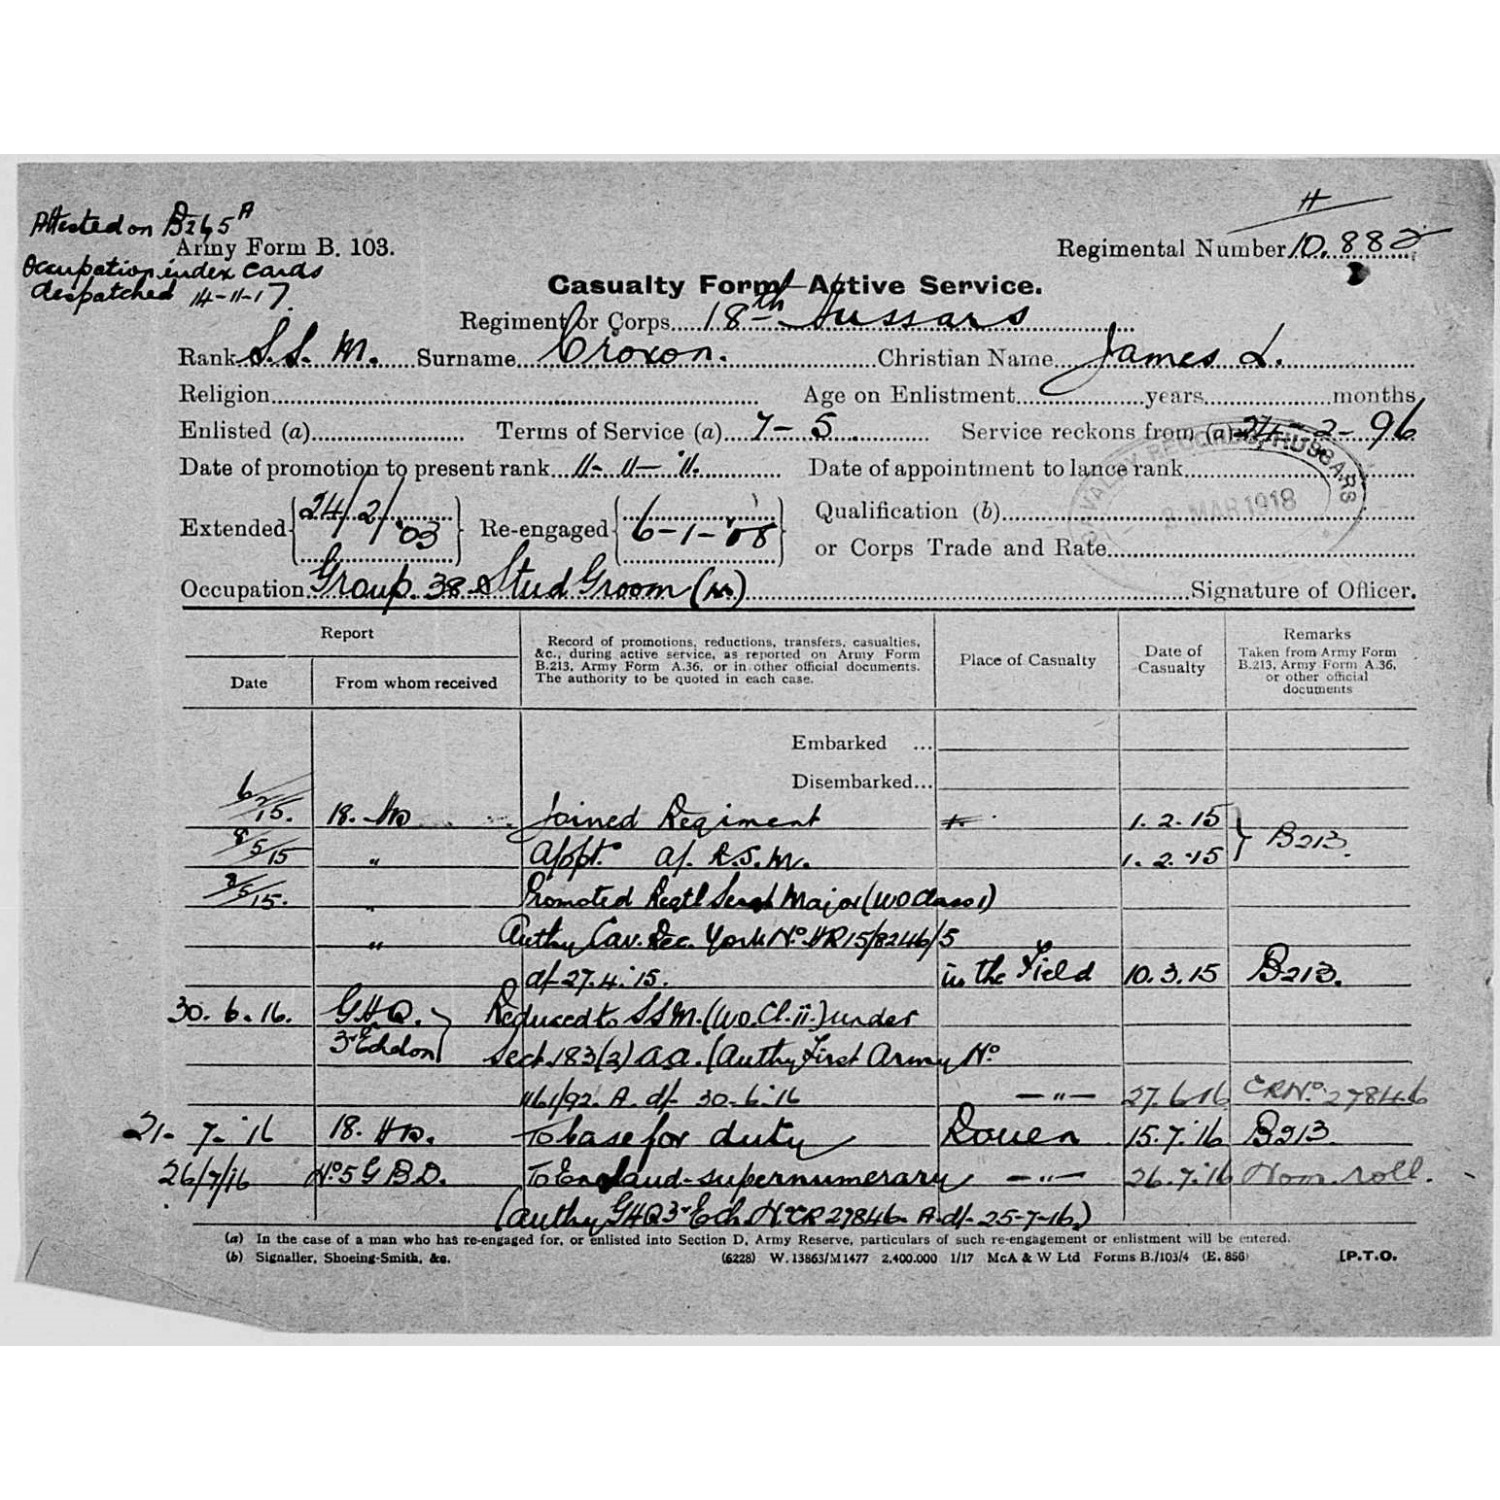 H
Attested on B265A
Army Form B. 103.
Regimental Number 10.882
Occupation index cards
despatched 14-11-17
Casualty Form—Active Service.
Regiment or Corps 18th Hussars
Rank S.S.M. Surname Croxon. Christian Name James L.
Religion Age on Enlistment years months
Enlisted (a) Terms of Service (a) 7-5 Service reckons from (a) 24-2-96
Date of promotion to present rank 11-11-11. Date of appointment to lance rank
Extended 24/2/'03 Re-engaged 6-1-'08 Qualification (b)
or Corps Trade and Rate
CAVALRY RECORDS HUSSARS
MAR 1918
Occupation Group 38 Stud Groom Signature of Officer.
Report
Record of promotions, reductions, transfers, casualties, &c., during active service, as reported on Army Form B.213, Army Form A.36, or in other official documents. The authority to be quoted in each case.
Place of Casualty
Date of Casualty
Remarks
Taken from Army Form B.213, Army Form A.36, or other official documents
Date From whom received
Embarked ...
Disembarked...
6/2/15. 18. Hrs Joined Regiment 1.2.15
8/5/15 " Appt. a/. R.S.M. 1.2.'15 B213.
/5/15. " Promoted Regtl Sergt Major (WO Class 1)
" Authy Cav. Rec. York No. HR15/8246/5
d/-27.4.'15. in the Field 10.3.15 B213.
30.6.16. G.H.Q. Reduced to SSM. (WO.Cl.ii.) under
3rd Echelon Sect. 183(2) a.a. (Authy First Army No
1161/92. A. d/- 30-6-'16 —"— 27.6.16 CRNo. 27846
21-7-'16 18. Hrs. To base for duty Rouen 15.7.'16 B213.
26/7/16 No5 G.B.D. To England-supernumerary —"— 26.7.16 Nom. roll.
(Authy GHQ 3rd Ech. No CR 27846. A. d/- 25-7-16.)
(a) In the case of a man who has re-engaged for, or enlisted into Section D, Army Reserve, particulars of such re-engagement or enlistment will be entered.
(b) Signaller, Shoeing-Smith, &c. (6228) W. 13863/M1477 2,400.000 1/17 McA & W Ltd Forms B./103/4 (E. 856) [P.T.O.